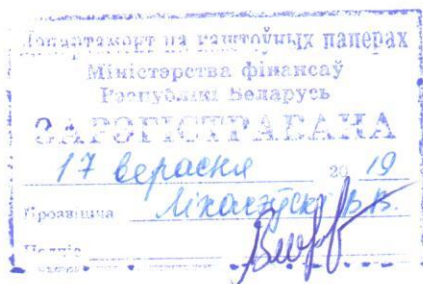 Дэпартамент па каштоўных паперах
Міністэрства фінансаў
Рэспублікі Беларусь
ЗАРЭГІСТРАВАНА
17 верасня 2019
Прозвішча В.В.
Подпіс